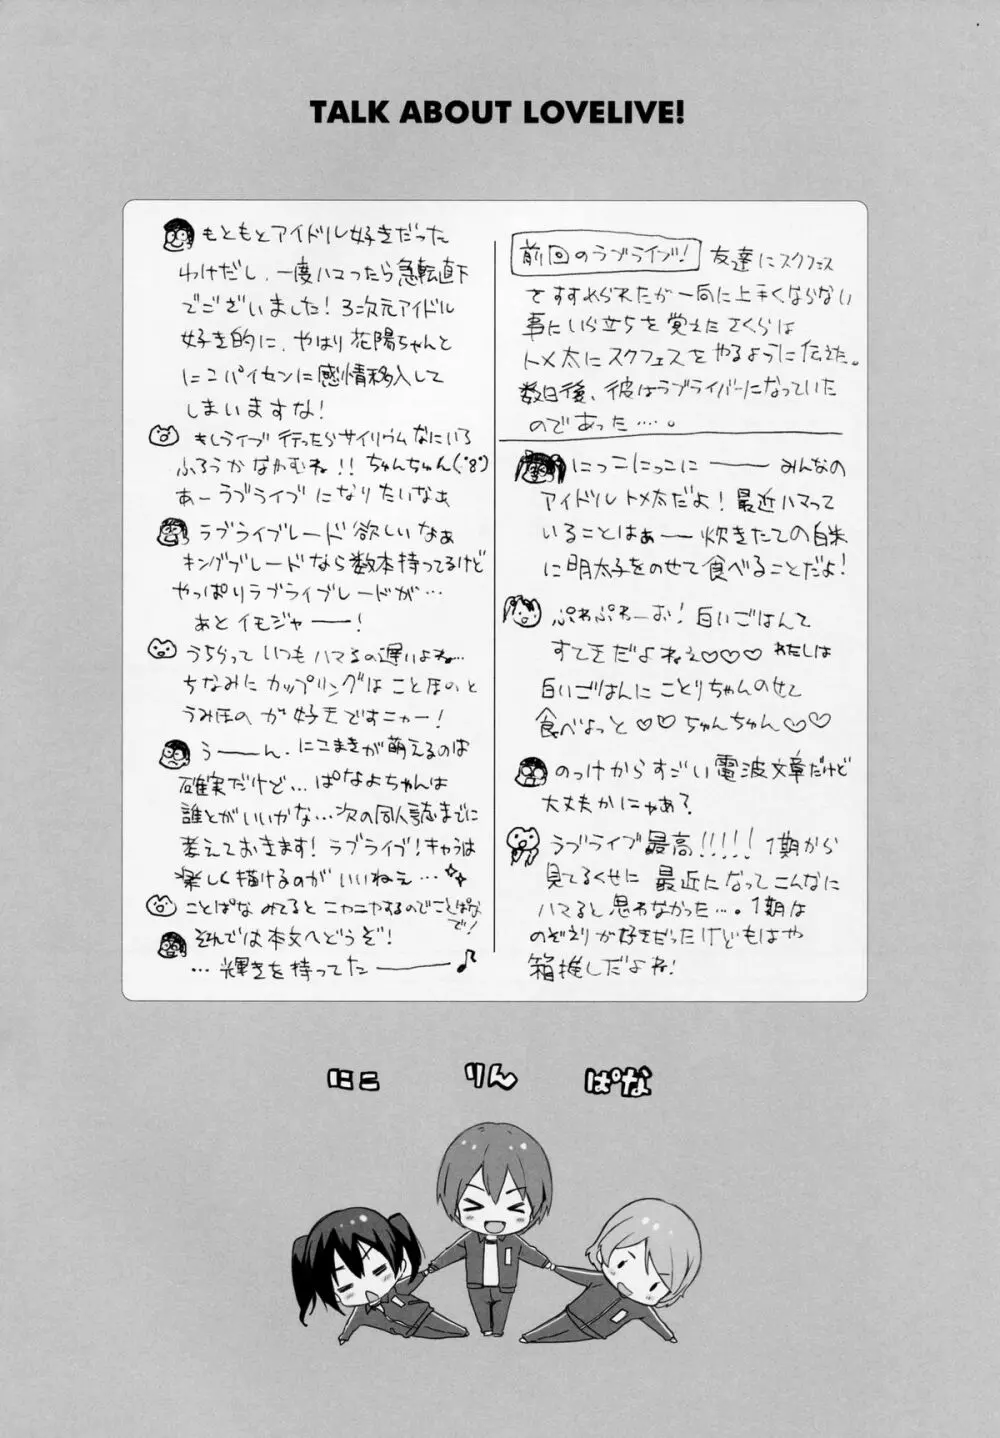 TALK ABOUT LOVELIVE!
前回のラブライブ! 友達にスクフェス
をすすめられたが一向に上手くならない
事にいら立ちを覚えたさくらは
トメ太にスクフェスをやるように伝えた。
数日後、彼はラブライバーになっていた
のであった…。
にっこにっこにーーー みんなの
アイドルトメ太だよ!最近ハマって
いることはぁー 炊きたての白米
に明太子をのせて食べることだよ!
ぷわぷわーお!白いごはんて
すてきだよねぇ♡♡♡ わたしは
白いごはんにことりちゃんのせて
食べよっと♡♡ちゅんちゅん♡♡
のっけからすごい電波文章だけど
大丈夫かにゃあ?
ラブライブ最高!!!!! 1期から
見てるくせに最近になってこんなに
ハマると思わなかった…。1期は
のぞえりが好きだったけどもはや
箱推しだよね!
もともとアイドル好きだった
わけだし、一度ハマったら急転直下
でございました!3次元アイドル
好き的に、やはり花陽ちゃんと
にこパイセンに感情移入して
しまいますな!
もしライブ行ったらサイリウムなにいろ
ふろうかなやむね!!ちゅんちゅん(・8・)
あーラブライブになりたいなぁ
ラブライブレード欲しいなぁ
キングブレードなら数本持ってるけど
やっぱりラブライブレードが…
あとイモジャーー!
うちらっていつもハマるの遅いよね…
ちなみにカップリングはことほのと
うみほのが好きですニャー!
うーーん、にこまきが萌えるのは
確実だけど…ぱなよちゃんは
誰とがいいかな…次の同人誌までに
考えておきます!ラブライブ!キャラは
楽しく描けるのがいいねぇ…
ことぱなみてるとニヤニヤするのでことぱなで!
それでは本文へどうぞ!
…輝きを待ってたーーー♪
にこ りん ぱな